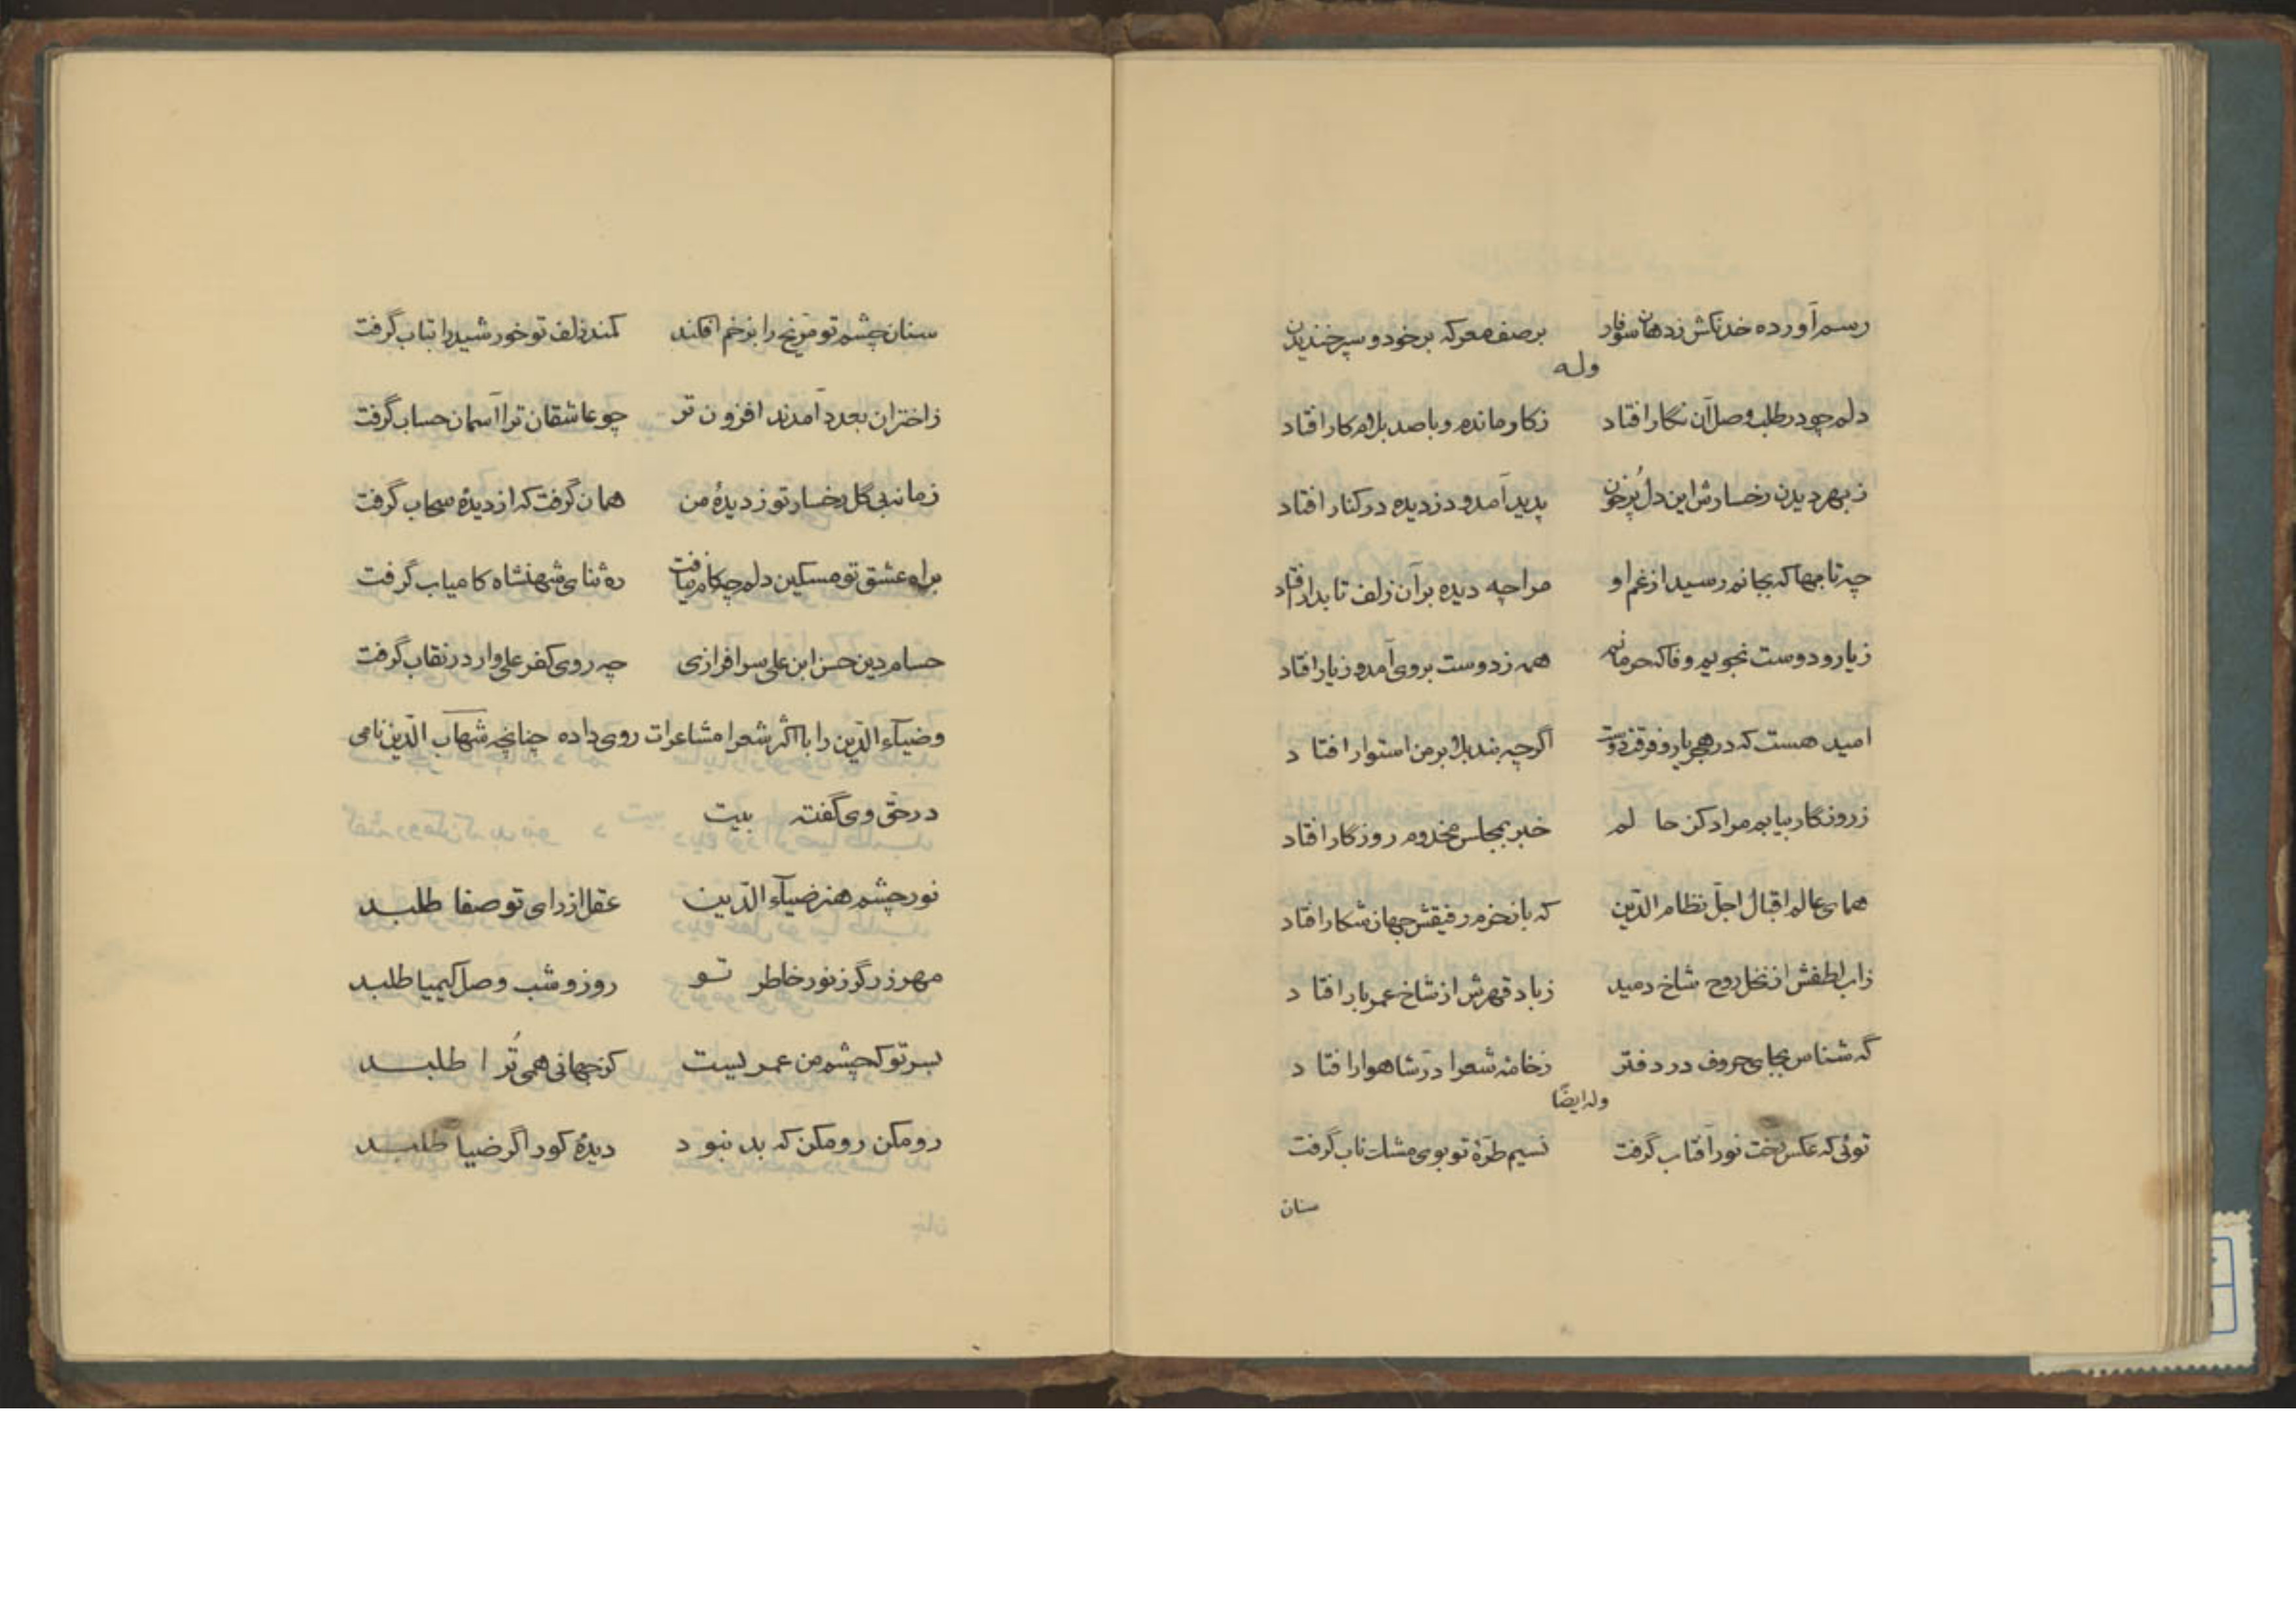 رسم آورده خدنگش زدهان سوفار برصف معرکه برخود و سپر خندیدن
وله
دلم چو در طلب وصل آن نگار افتاد زکار ماندم و با صد بلام کار افتاد
زبهر دیدن رخسارش این دل پُرخون پدید آمد و دزدیده در کنار افتاد
چه تابها که بجانم رسید از غم او مرا چه دیده بر آن زلف تابدار افتاد
زیار و دوست نجویم وفا که حرمانم همه زدوست بروی آمد و زیار افتاد
امید هست که در هجر یار و فرقت دوست اگرچه بند بلا بر من استوار افتاد
زروزگار بیابم مراد کز حالم خبر بمجلس مخدوم روزگار افتاد
همای عالم اقبال اجلّ نظام الدّین که باز خرم رفیقش جهان شکار افتاد
زاب لطفش از نخل روح شاخ دمید زباد قهرش از شاخ عمر بار افتاد
گه شناس بجای حروف در دفتر زخامهٔ شعرا درّ شاهوار افتاد
وله ایضًا
توئی که عکس رخت نور آفتاب گرفت نسیم طرّهٔ تو بوی مشک ناب گرفت
سنان
سنان چشم تو مرّیخ را بزخم افکند کمند زلف تو خورشید را بتاب گرفت
زاختران بعدد آمدند افزون تر چو عاشقان ترا آسمان حساب گرفت
زمانه بی گل رخسار تو زدیدهٔ من همان گرفت که از دیدهٔ سحاب گرفت
براه عشق تو مسکین دلم چو کام نیافت ره ثنای شهنشاه کامیاب گرفت
حسام دین حسن ابن علی سرافرازی چه روی کفر علی وار در نقاب گرفت
وضیآء الدّین را با اکثر شعرا مشاعرات روی داده چنانچه شهاب الدّین نامی
در حقّ وی گفته بیت
نور چشم هنر ضیآء الدّین عقل از رای تو صفا طلبد
مهر زرگر زنور خاطر تو روز و شب وصل کیمیا طلبد
بسر تو که چشم من عمریست کز جهانی همی تُرا طلبد
رو مکن رو مکن که بد نبود دیدهٔ کور اگر ضیا طلبد